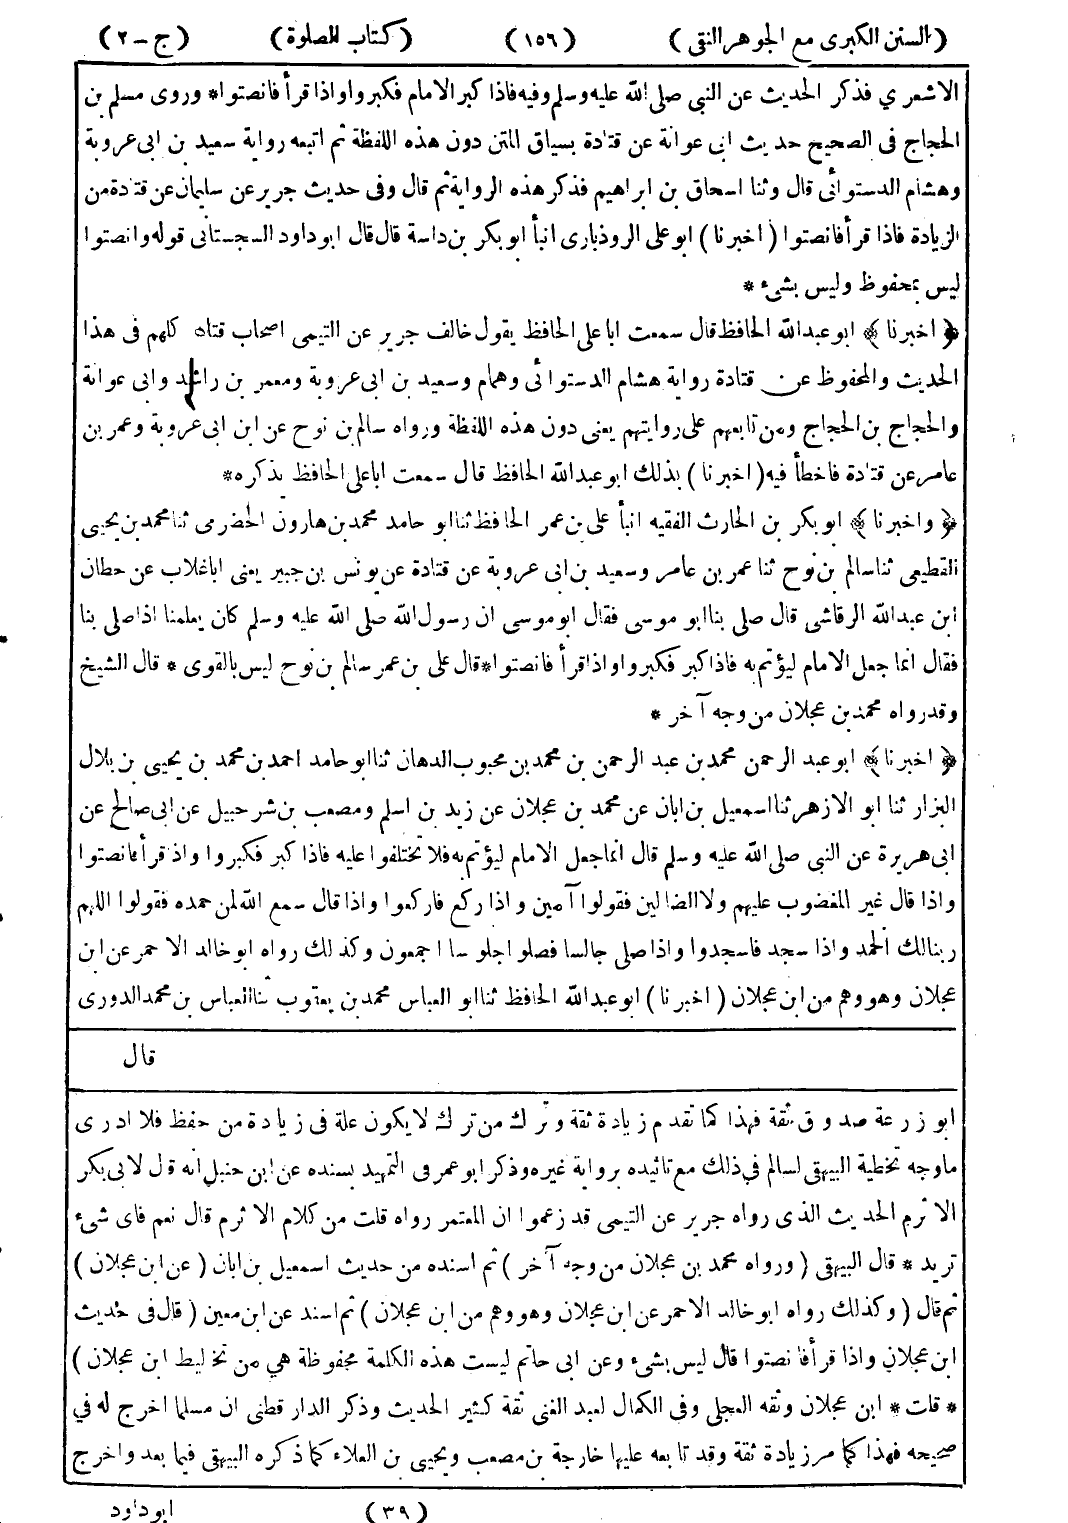 (السنن الكبرى مع الجوهر النقى) (١٥٦) (كتاب الصلوة) (ج-٢)
الاشعري فذكر الحديث عن النبي صلى الله عليه وسلم وفيه فاذا كبر الامام فكبروا واذا قرأ فانصتوا* وروى مسلم بن
الحجاج فى الصحيح حديث ابى عوانة عن قتادة بسياق المتن دون هذه اللفظة ثم اتبعه رواية سعيد بن ابى عروبة
وهشام الدستوائى قال وثنا اسحاق بن ابراهيم فذكر هذه الرواية ثم قال وفى حديث جرير عن سليمان عن قتادة من
الزيادة فاذا قرأ فانصتوا (اخبرنا) ابو على الروذبارى انبأ ابو بكر بن داسة قال قال ابو داود السجستانى قوله وانصتوا
ليس بمحفوظ وليس بشىء *
﴿اخبرنا﴾ ابو عبدالله الحافظ قال سمعت ابا على الحافظ يقول خالف جرير عن التيمى اصحاب قتادة كلهم فى هذا
الحديث والمحفوظ عن قتادة رواية هشام الدستوائى وهمام وسعيد بن ابى عروبة ومعمر بن راشد وابى عوانة
والحجاج بن الحجاج ومن تابعهم على روايتهم يعنى دون هذه اللفظة ورواه سالم بن نوح عن ابن ابى عروبة وعمر بن
عامر عن قتادة فاخطأ فيه (اخبرنا) بذلك ابو عبدالله الحافظ قال سمعت ابا على الحافظ يذكره*
﴿واخبرنا﴾ ابو بكر بن الحارث الفقيه انبأ على بن عمر الحافظ ثنا ابو حامد محمد بن هارون الحضرمى ثنا محمد بن يحيى
القطيعى ثنا سالم بن نوح ثنا عمر بن عامر وسعيد بن ابى عروبة عن قتادة عن يونس بن جبير يعنى ابا غلاب عن حطان
ابن عبدالله الرقاشى قال صلى بنا ابو موسى فقال ابو موسى ان رسول الله صلى الله عليه وسلم كان يعلمنا اذا صلى بنا
فقال انما جعل الامام ليؤتم به فاذا كبر فكبروا واذا قرأ فانصتوا*قال على بن عمر سالم بن نوح ليس بالقوى * قال الشيخ
وقد رواه محمد بن عجلان من وجه آخر *
﴿اخبرنا﴾ ابو عبد الرحمن محمد بن عبد الرحمن بن محمد بن محبوب الدهان ثنا ابو حامد احمد بن محمد بن يحيى بن بلال
البزار ثنا ابو الازهر ثنا اسمعيل بن ابان عن محمد بن عجلان عن زيد بن اسلم ومصعب بن شرحبيل عن ابى صالح عن
ابى هريرة عن النبى صلى الله عليه وسلم قال انما جعل الامام ليؤتم به فلا تختلفوا عليه فاذا كبر فكبروا واذا قرأ فانصتوا
واذا قال غير المغضوب عليهم ولا الضالين فقولوا آمين واذا ركع فاركعوا واذا قال سمع الله لمن حمده فقولوا اللهم
ربنا لك الحمد واذا سجد فاسجدوا واذا صلى جالسا فصلوا جلوسا اجمعون وكذلك رواه ابو خالد الاحمر عن ابن
عجلان وهو وهم من ابن عجلان (اخبرنا) ابو عبدالله الحافظ ثنا ابو العباس محمد بن يعقوب ثنا العباس بن محمد الدورى
قال
ابو زرعة صدوق ثقة فهذا كما تقدم زيادة ثقة وترك من ترك لا يكون علة فى زيادة من حفظ فلا ادرى
ما وجه تخطية البيهقى لسالم فى ذلك مع تائيده برواية غيره وذكر ابو عمر فى التمهيد بسنده عن ابن حنبل انه قول لابى بكر
الاثرم الحديث الذى رواه جرير عن التيمى قد زعموا ان المعتمر رواه قلت من كلام الاثرم قال نعم فاى شىء
تريد * قال البيهقى (ورواه محمد بن عجلان من وجه آخر) ثم اسنده من حديث اسمعيل بن ابان (عن ابن عجلان)
ثم قال (وكذلك رواه ابو خالد الاحمر عن ابن عجلان وهو وهم من ابن عجلان) ثم اسند عن ابن معين (قال فى حديث
ابن عجلان واذا قرأ فانصتوا قال ليس بشىء وعن ابى حاتم ليست هذه الكلمة محفوظة هي من تخليط ابن عجلان)
* قلت * ابن عجلان وثقه العجلى وفى الكمال لعبد الغنى ثقة كثير الحديث وذكر الدار قطنى ان مسلما اخرج له في
صحيحه فهذا كما مر زيادة ثقة وقد تابعه عليها خارجة بن مصعب ويحيى بن العلاء كما ذكره البيهقى فيما بعد واخرج
(٣٩) ابو داود